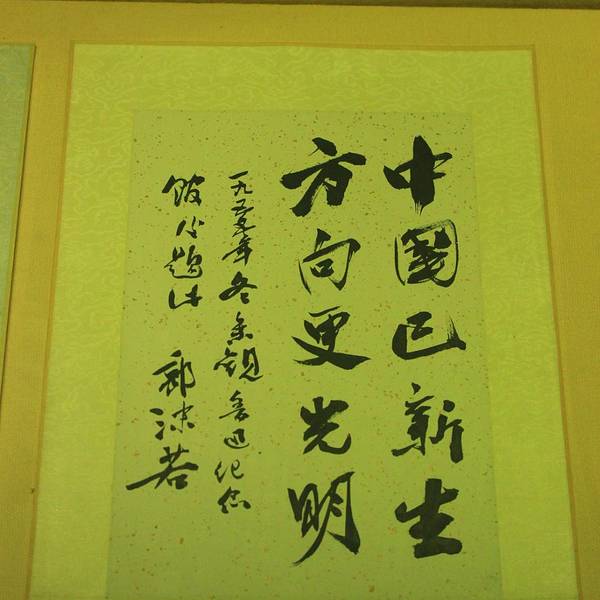 中國已新生
方向更光明
一九五五年冬参觀魯迅纪念
館後題此
郭沫若